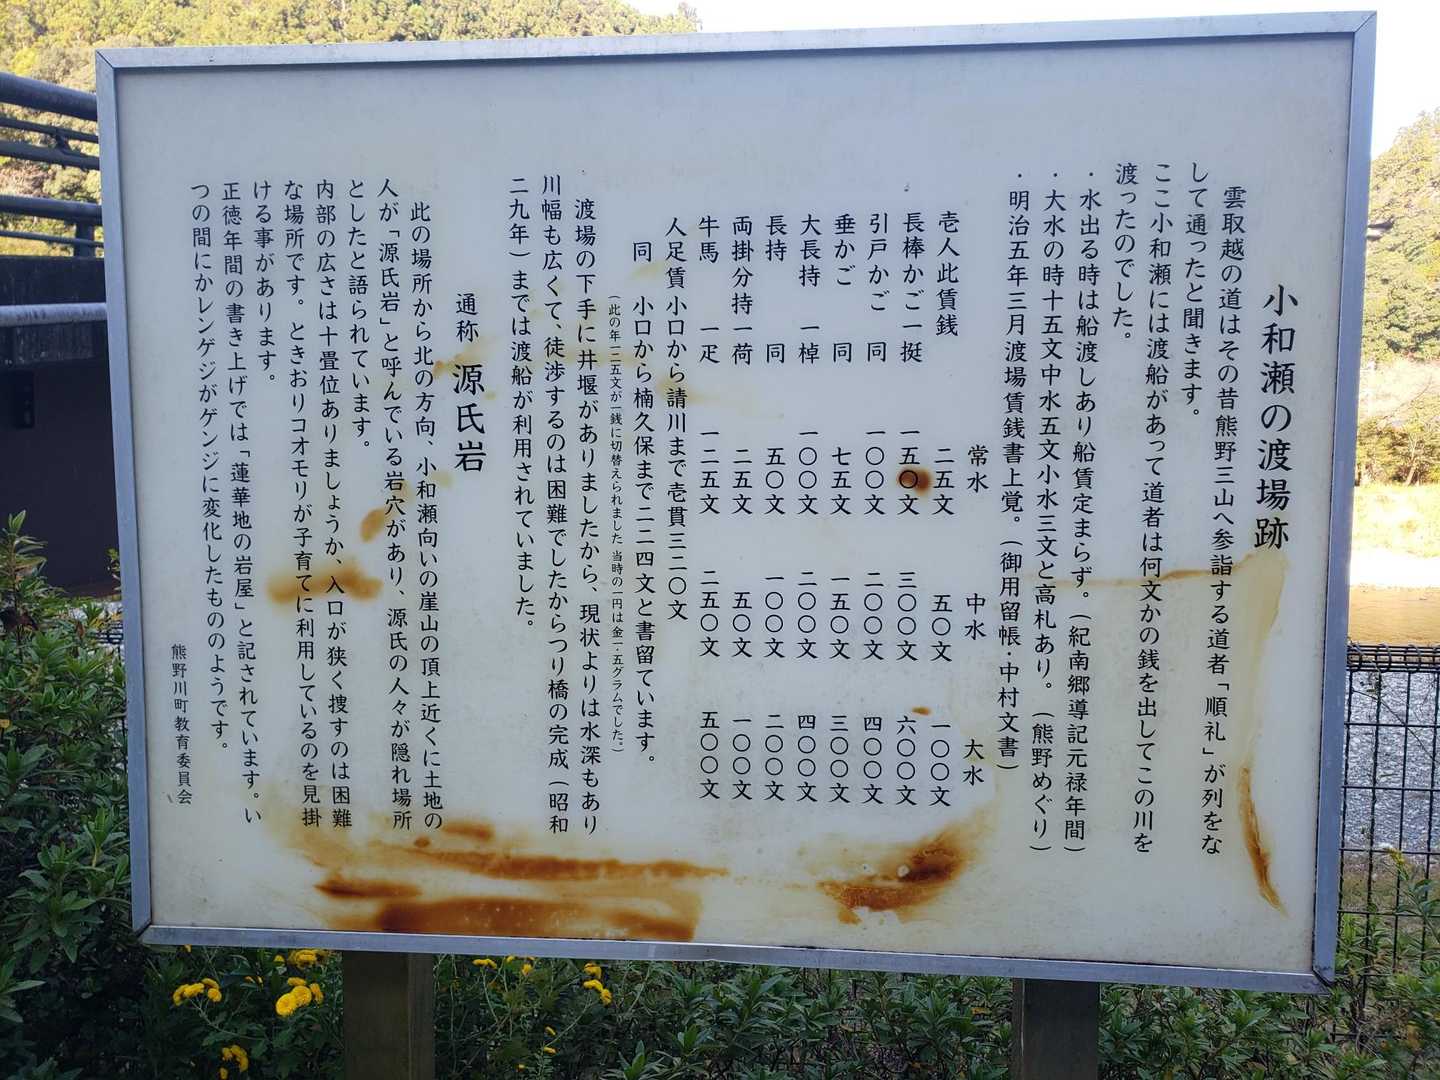 小和瀬の渡場跡
雲取越の道はその昔熊野三山へ参詣する道者「順礼」が列をな
して通ったと聞きます。
ここ小和瀬には渡船があって道者は何文かの銭を出してこの川を
渡ったのでした。
・水出る時は船渡しあり船賃定まらず。(紀南郷導記元禄年間)
・大水の時十五文中水五文小水三文と高札あり。(熊野めぐり)
・明治五年三月渡場賃銭書上覚。(御用留帳・中村文書)
常水 中水 大水
壱人此賃銭 二五文 五〇文 一〇〇文
長棒かご一挺 一五〇文 三〇〇文 六〇〇文
引戸かご 同 一〇〇文 二〇〇文 四〇〇文
垂かご 同 七五文 一五〇文 三〇〇文
大長持 一棹 一〇〇文 二〇〇文 四〇〇文
長持 同 五〇文 一〇〇文 二〇〇文
両掛分持一荷 二五文 五〇文 一〇〇文
牛馬 一疋 一二五文 二五〇文 五〇〇文
人足賃 小口から請川まで壱貫三二〇文
同 小口から楠久保まで二二四文と書留ています。
(此の年一二五文が一銭に切替えられました 当時の一円は金一・五グラムでした。)
渡場の下手に井堰がありましたから、現状よりは水深もあり
川幅も広くて、徒渉するのは困難でしたからつり橋の完成(昭和
二九年)までは渡船が利用されていました。
通称 源氏岩
此の場所から北の方向、小和瀬向いの崖山の頂上近くに土地の
人が「源氏岩」と呼んでいる岩穴があり、源氏の人々が隠れ場所
としたと語られています。
内部の広さは十畳位ありましょうか、入口が狭く捜すのは困難
な場所です。ときおりコオモリが子育てに利用しているのを見掛
ける事があります。
正徳年間の書き上げでは「蓮華地の岩屋」と記されています。い
つの間にかレンゲジがゲンジに変化したもののようです。
熊野川町教育委員会